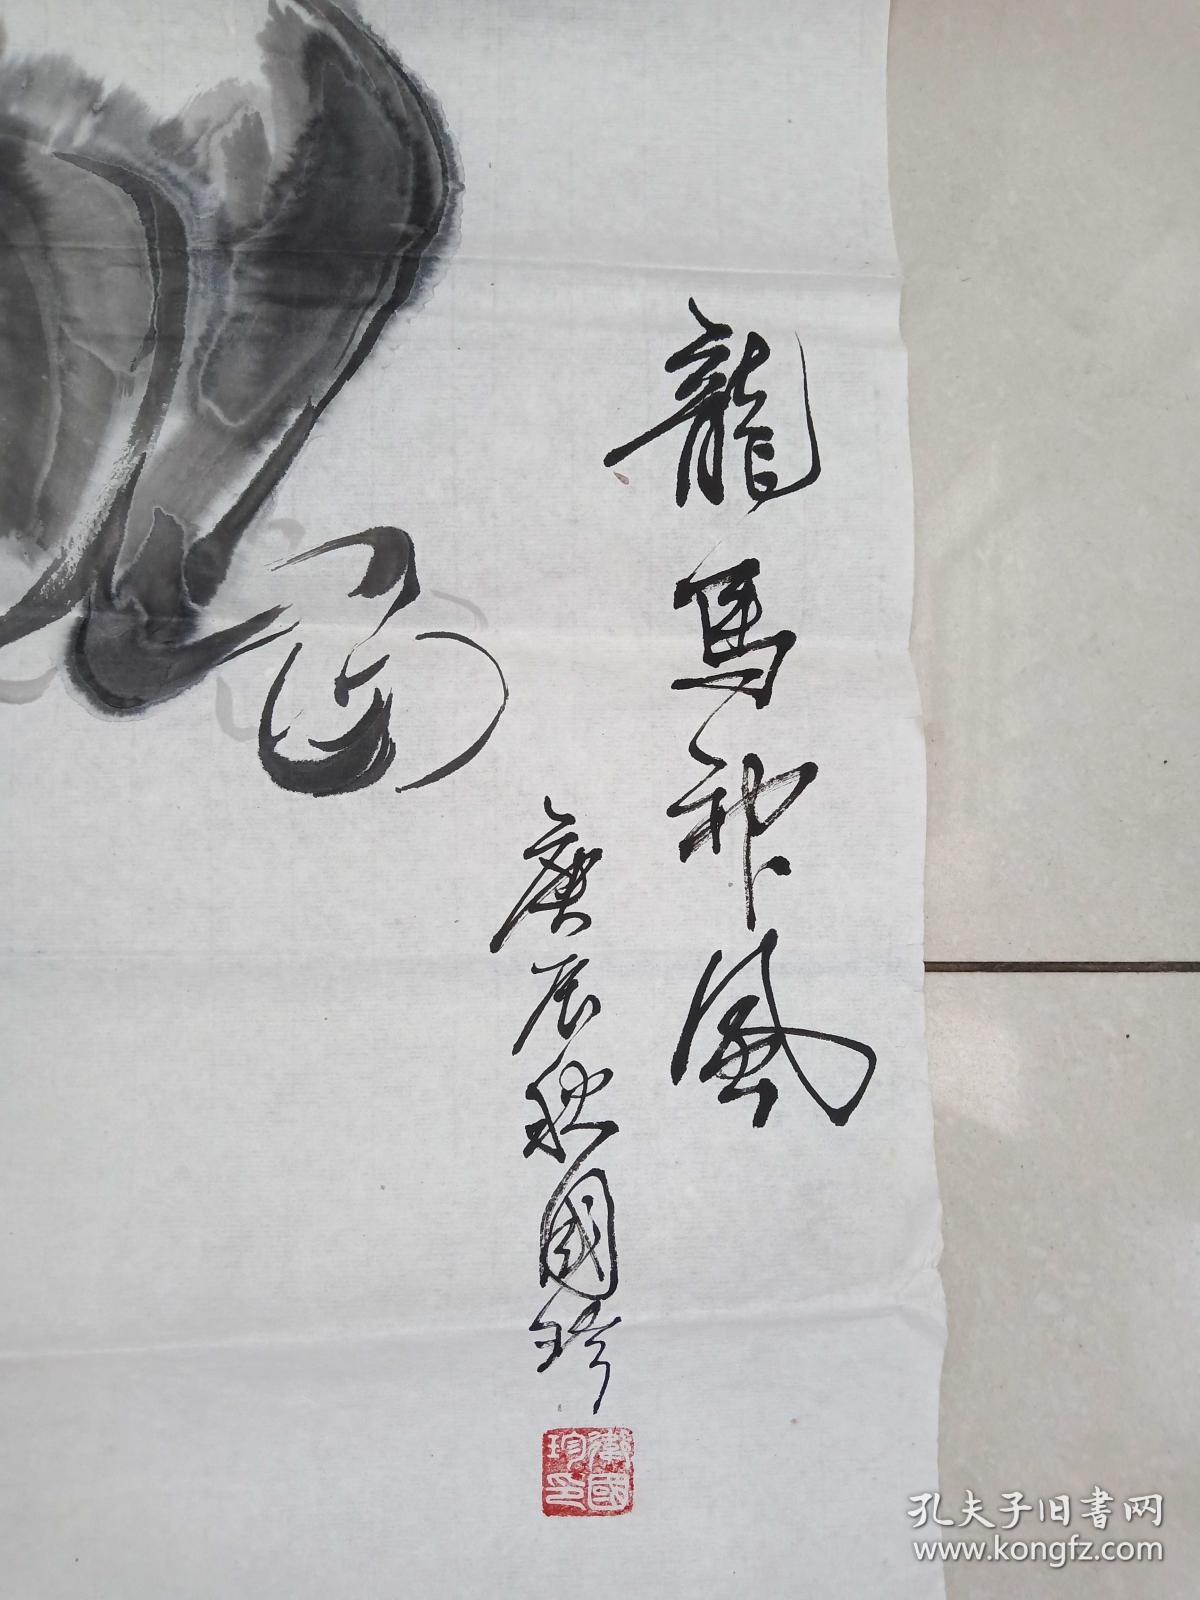 龍馬神風
庚辰秋國珍
衛國珍印
孔夫子旧书网
www.kongfz.com